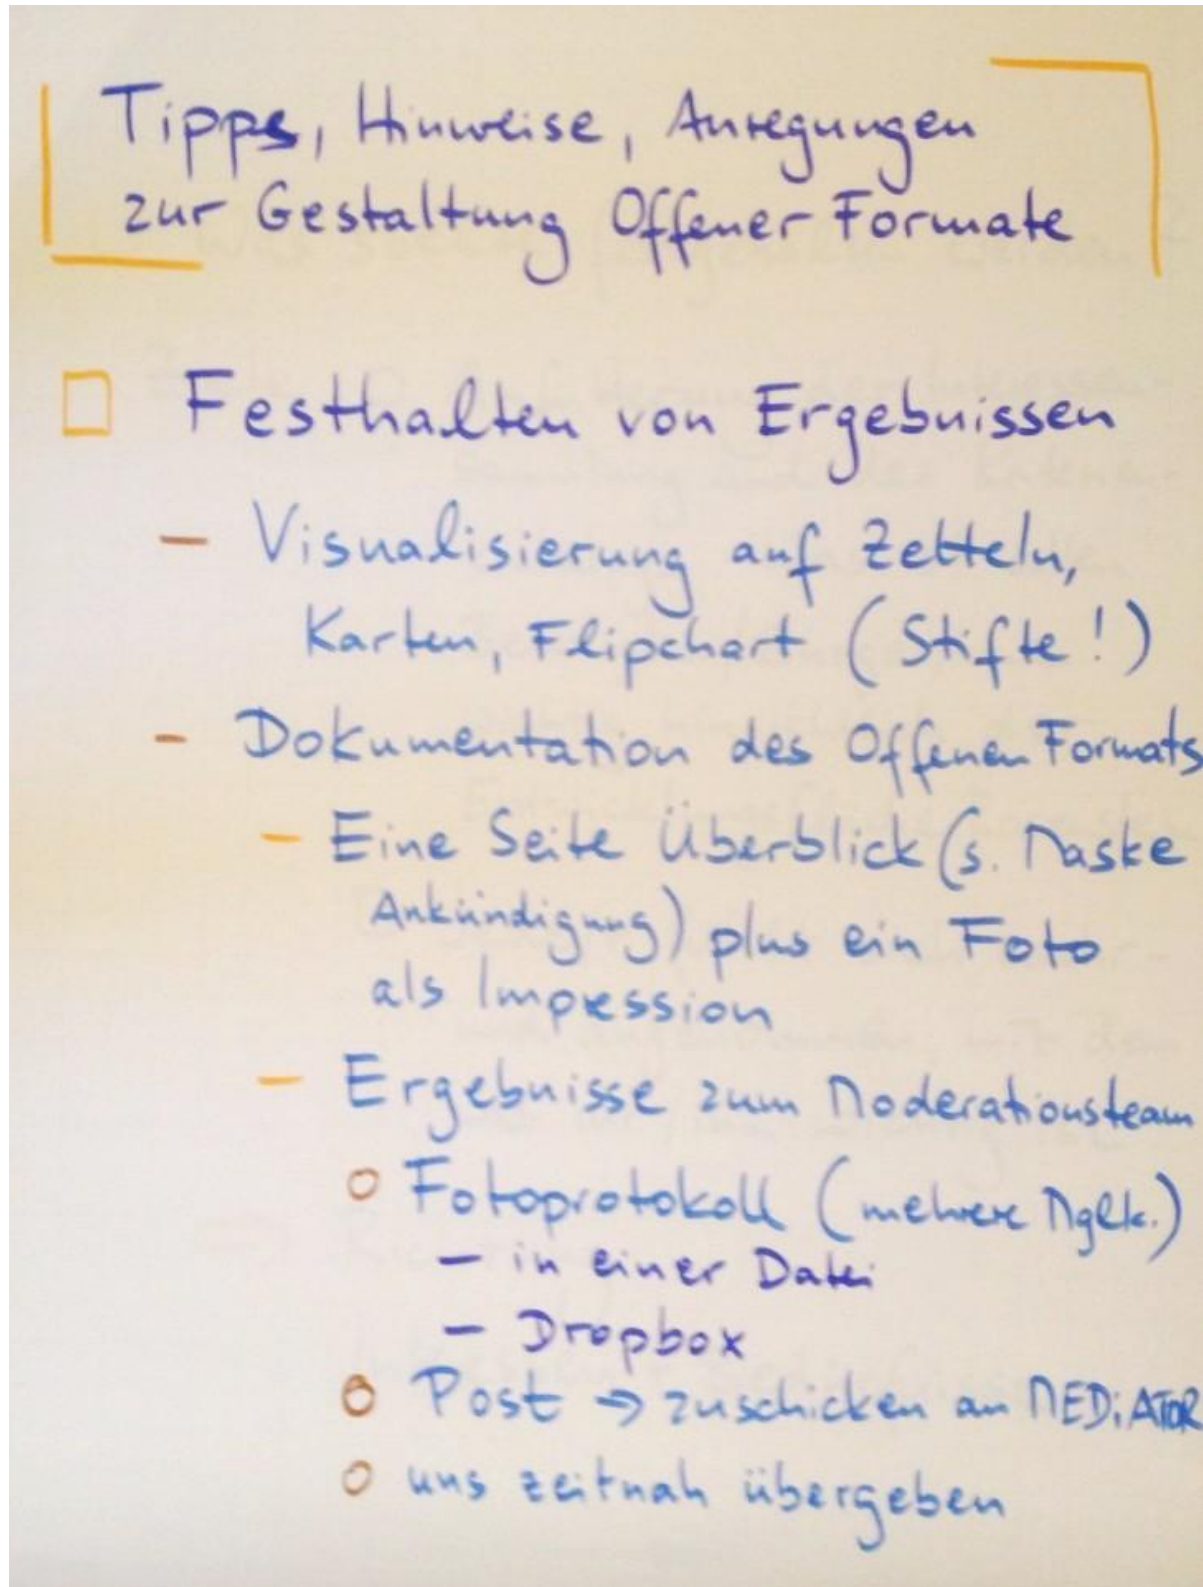 Tipps, Hinweise, Anregungen
zur Gestaltung Offener Formate
Festhalten von Ergebnissen
- Visualisierung auf Zetteln,
Karten, Flipchart (Stifte!)
- Dokumentation des Offenen Formats
- Eine Seite Überblick (s. Maske
Ankündigung) plus ein Foto
als Impression
- Ergebnisse zum Moderationsteam
o Fotoprotokoll (mehrere Mglk.)
- in einer Datei
- Dropbox
o Post → zuschicken an MEDiATOR
o uns zeitnah übergeben